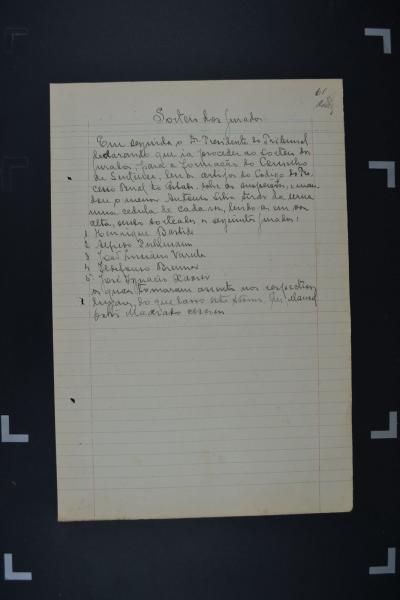 61
Sorteio dos Jurados
Em seguida o Dr. Presidente do Tribunal
declarando que ia proceder ao sorteio dos
jurados, para a formação do Conselho
de Sentença, leu os artigos do Codigo do Pro-
cesso Penal do Estado, sobre as suspeições, e man-
dou o menor Antonio Silva tirar da urna
uma cedula de cada vez, lendo-a em voz
alta, sendo sorteados os seguintes jurados:
1 Henrique Bastide
2 Alfredo
3 João Luciano Varella
4 Ildefonso Brenner
5 José Ignacio Xavier
os quaes tomaram assento nos respectivos
lugares, do que lavro este termo. Eu,
Machado escrevi